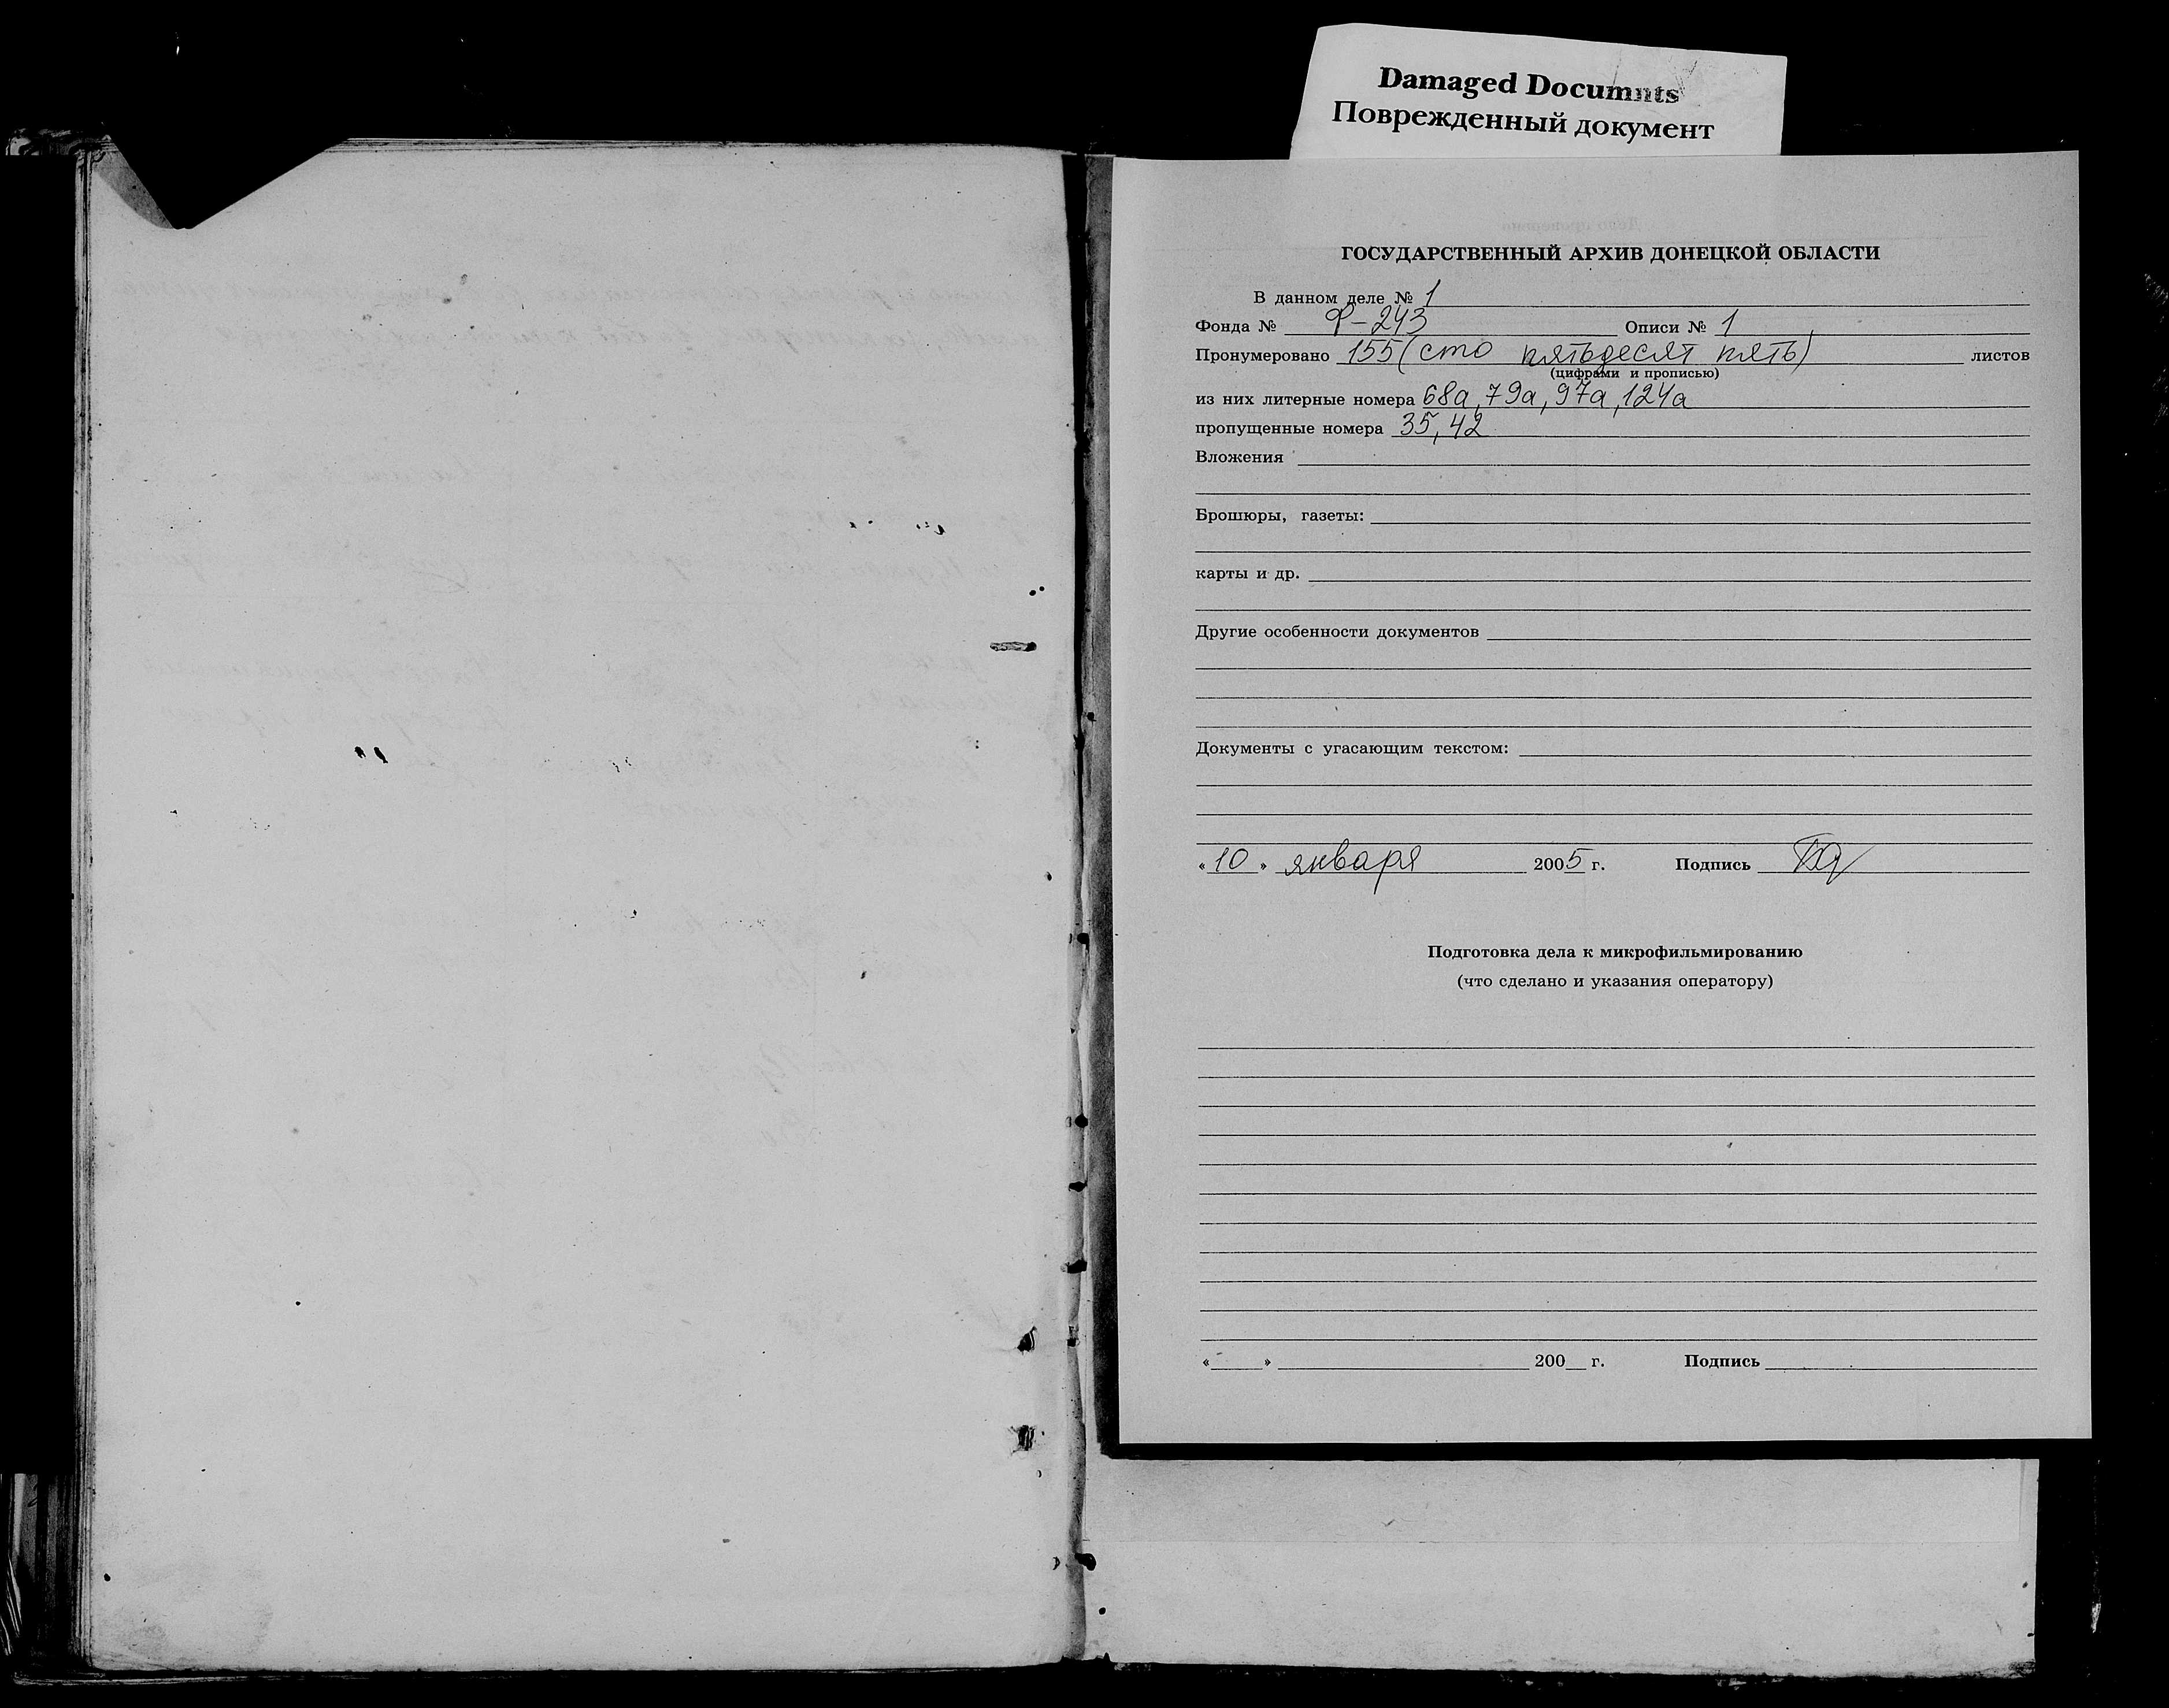 Damaged Documnts
Поврежденный документ
ГОСУДАРСТВЕННЫЙ АРХИВ ДОНЕЦКОЙ ОБЛАСТИ
В данном деле № 1
Фонда № Ф-243 Описи № 1
Пронумеровано 155 (сто пятьдесят пять) листов
(цифрами и прописью)
из них литерные номера 68а, 79а, 97а, 124а
пропущенные номера 35, 42
Вложения
Брошюры, газеты:
карты и др.
Другие особенности документов
Документы с угасающим текстом:
«10» января 2005 г. Подпись
Подготовка дела к микрофильмированию
(что сделано и указания оператору)
« » 200 г. Подпись